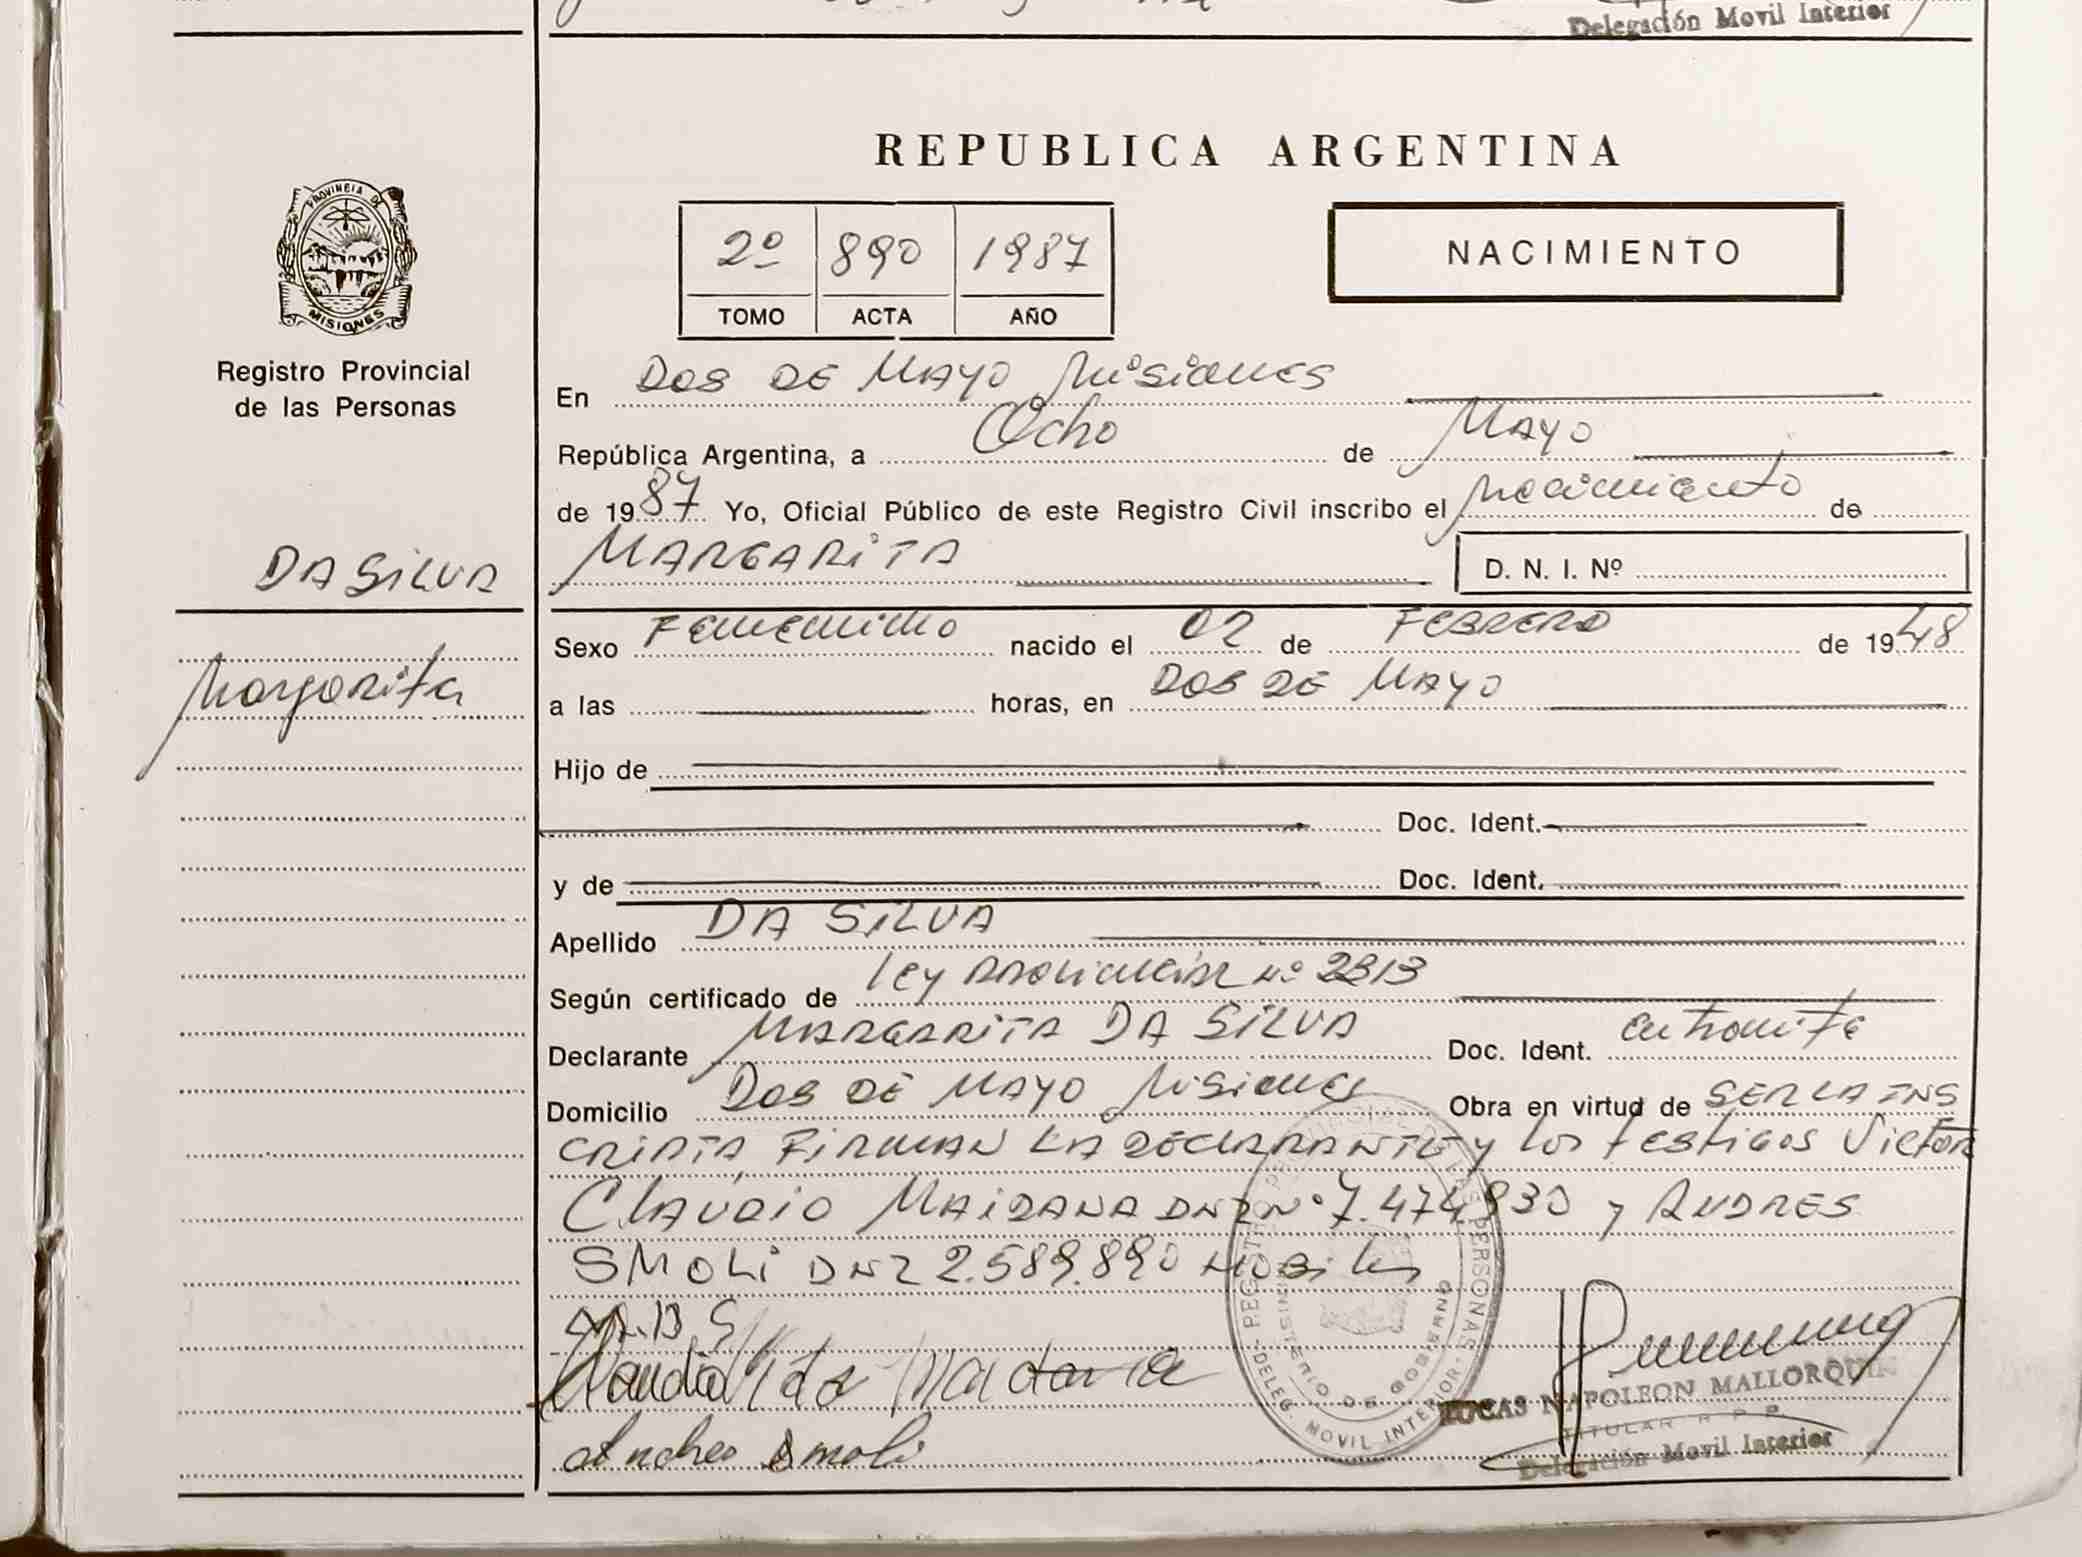 Delegación Movil Interior
REPUBLICA ARGENTINA
PROVINCIA DE
MISIONES
Registro Provincial
de las Personas
2º 890 1987
TOMO ACTA AÑO
NACIMIENTO
En DOS DE MAYO Misiones
República Argentina, a Ocho de MAYO
de 1987 Yo, Oficial Público de este Registro Civil inscribo el Nacimiento de
DA SILVA
Margarita
MARGARITA D. N. I. Nº
Sexo Femenino nacido el 02 de FEBRERO de 1948
a las horas, en DOS DE MAYO
Hijo de
Doc. Ident.
y de Doc. Ident.
Apellido DA SILVA
Según certificado de Ley PROVINCIAL Nº 2313
Declarante MARGARITA DA SILVA Doc. Ident. en tramite
Domicilio DOS DE MAYO Misiones Obra en virtud de SER LA INS
CRIPTA FIRMAN LA DECLARANTE y los testigos Victor
CLAUDIO MAIDANA DNI Nº 7.474.930 y ANDRES
SMOLI DNI 2.589.890
M.D.S
Maidana
Andres Smoli
REGISTRO PROVINCIAL DE LAS PERSONAS
MINISTERIO DE GOBIERNO
DELEG. MOVIL INTERIOR
LUCAS NAPOLEON MALLORQUIN
TITULAR R P P
Delegación Movil Interior